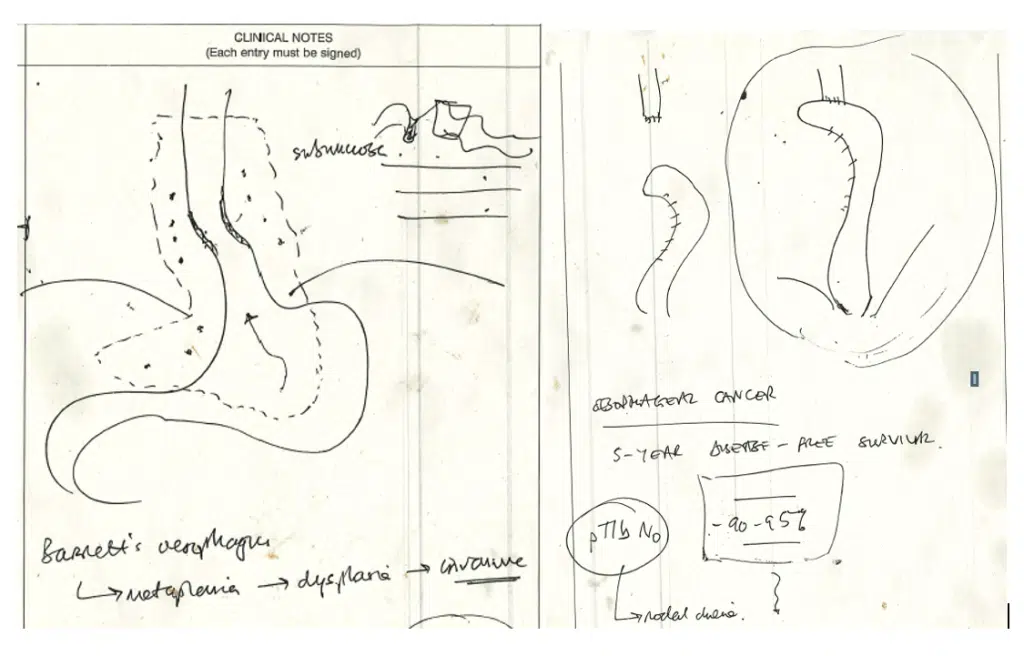 CLINICAL NOTES
(Each entry must be signed)
submucosa
Barrett's oesophagus
metaplasia → dysplasia → invasive
OESOPHAGEAL CANCER
5-YEAR DISEASE-FREE SURVIVAL.
pT1b N0
-90-95%
nodal